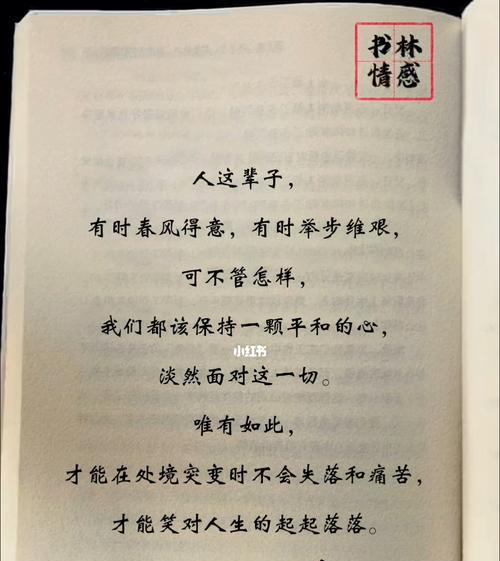 书林
情感
人这辈子，
有时春风得意，有时举步维艰，
可不管怎样，
我们都该保持一颗平和的心，
小红书
淡然面对这一切。
唯有如此，
才能在处境突变时不会失落和痛苦，
才能笑对人生的起起落落。